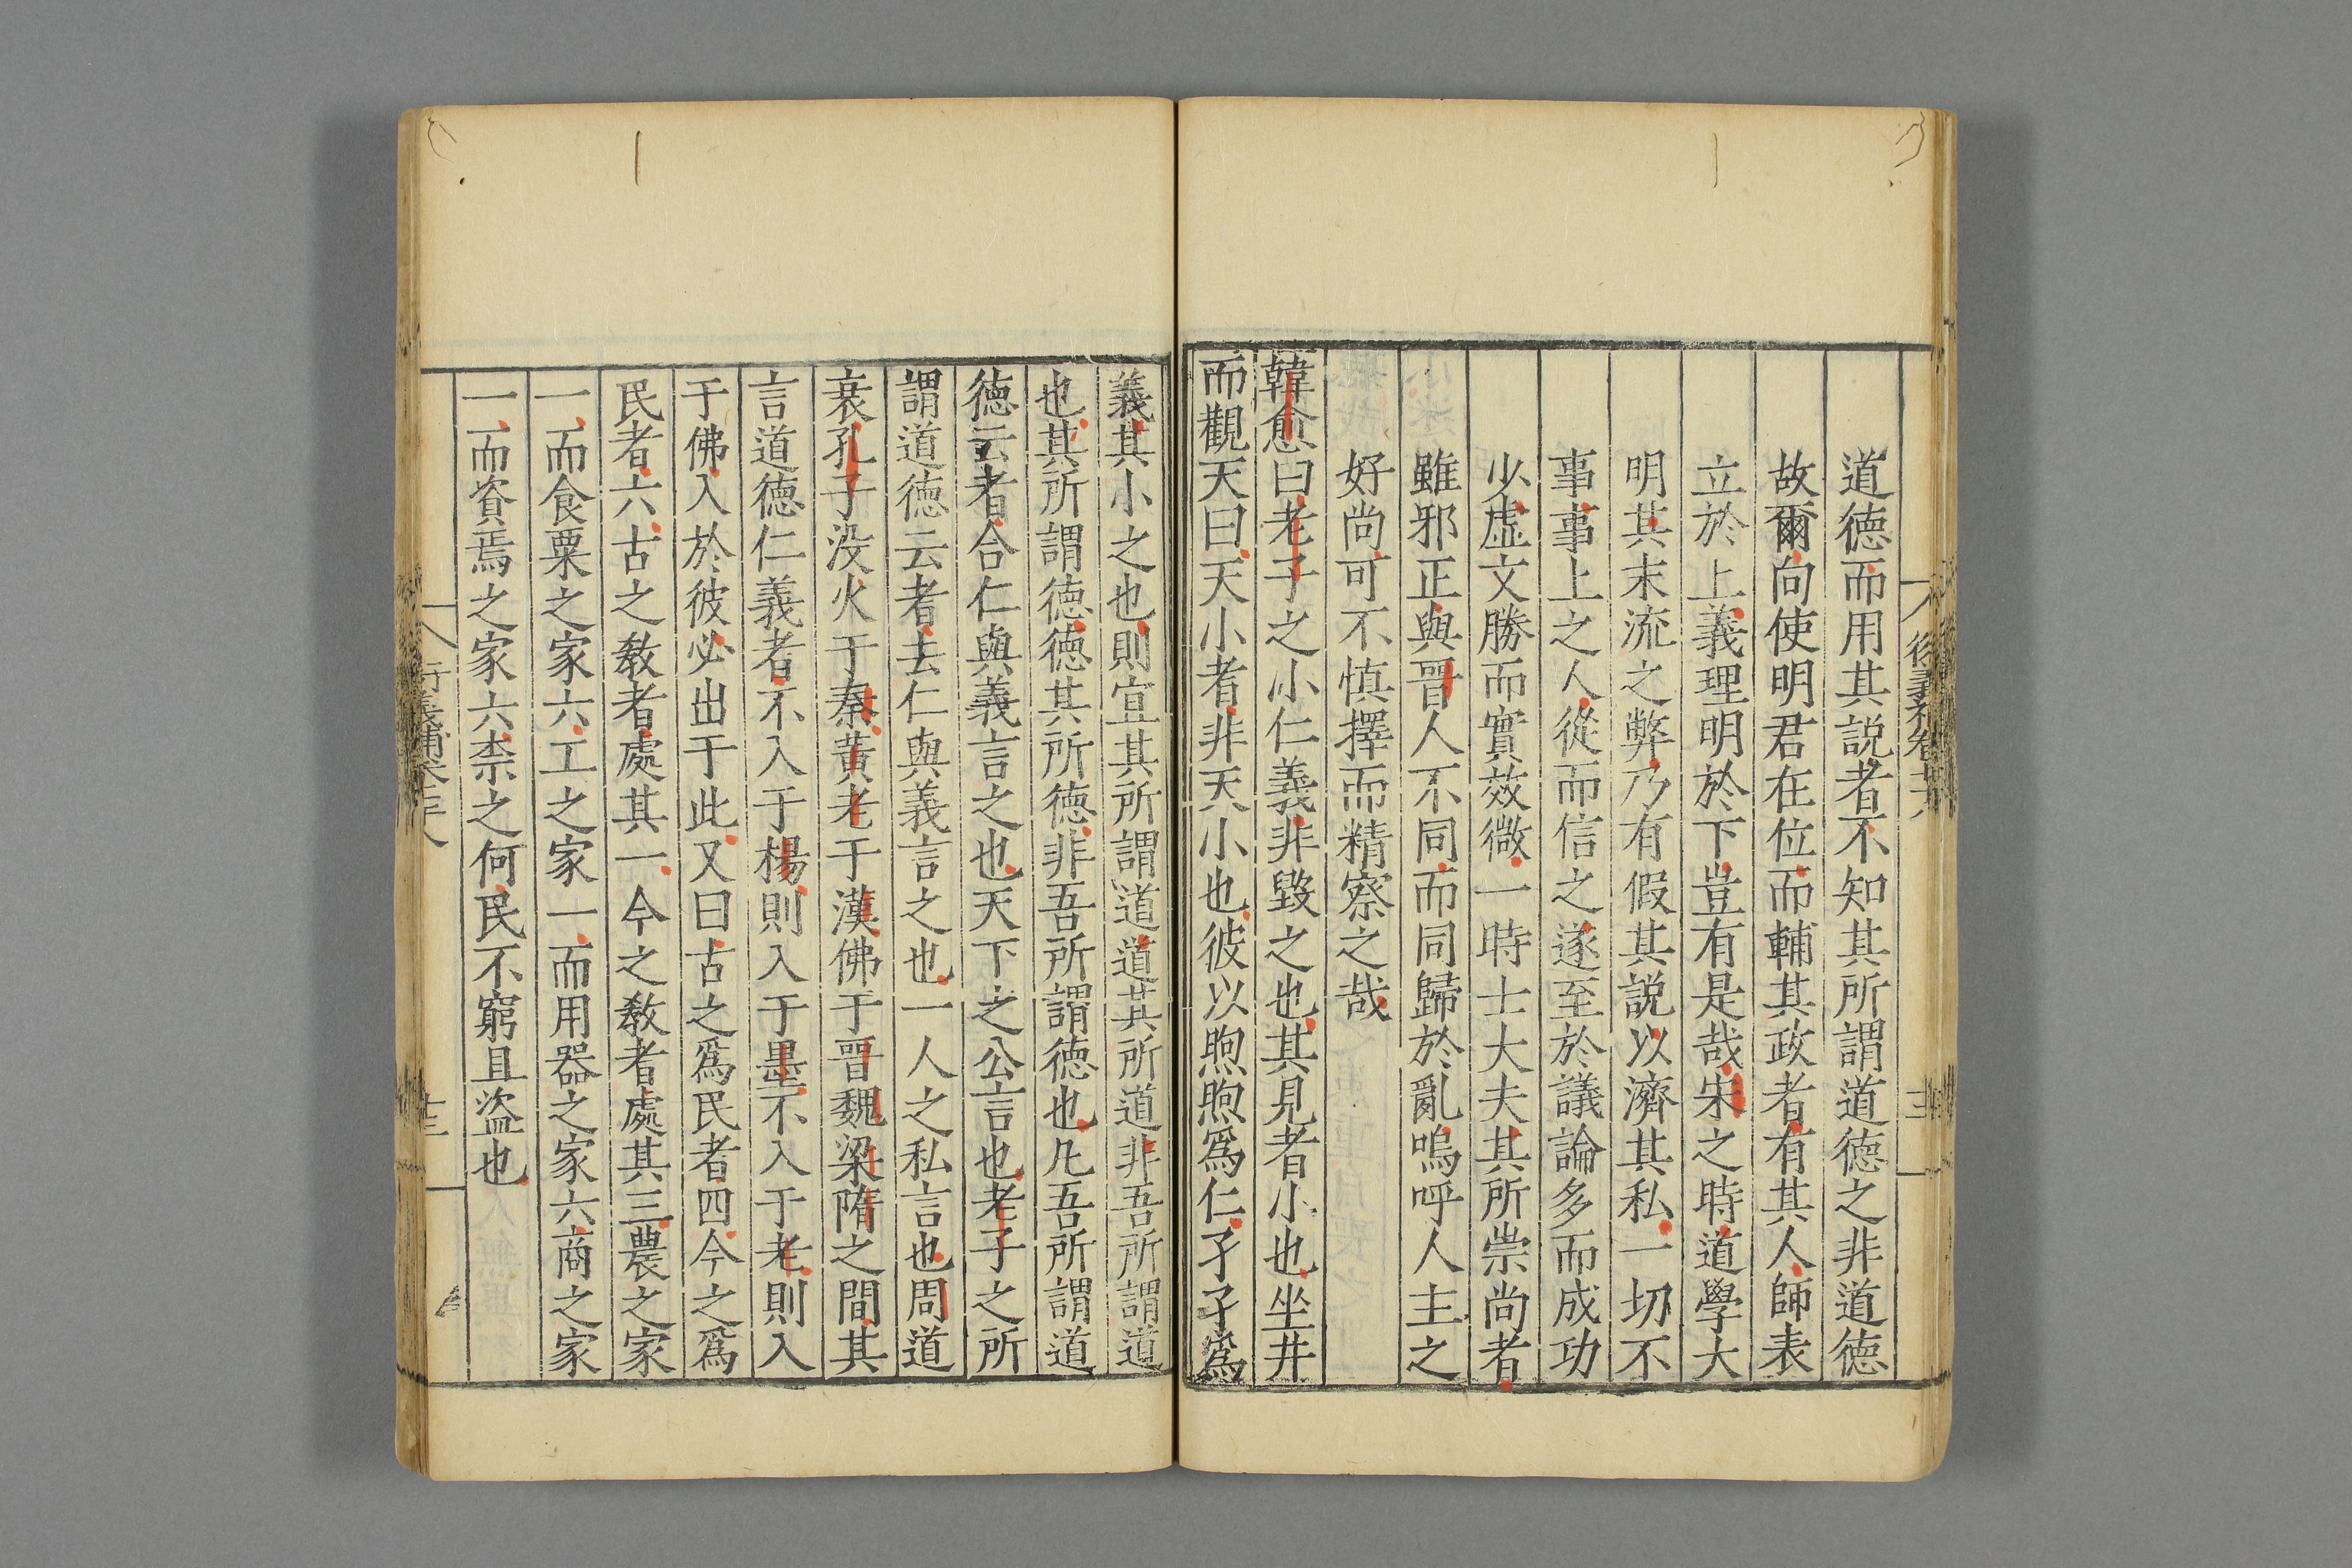 道德而用其説者不知其所謂道德之非道德
故爾向使明君在位而輔其政者有其人師表
立於上義理明於下豈有是哉宋之時道學大
明其末流之弊乃有假其説以濟其私一切不
事事上之人從而信之遂至於議論多而成功
少虛文勝而實效微一時士大夫其所崇尚者
雖邪正與晉人不同而同歸於亂嗚呼人主之
好尚可不慎擇而精察之哉
韓愈曰老子之小仁義非毀之也其見者小也坐井
而觀天曰天小者非天小也彼以煦煦爲仁孑孑爲
義其小之也則宜其所謂道道其所道非吾所謂道
也其所謂德德其所德非吾所謂德也凡吾所謂道
德云者合仁與義言之也天下之公言也老子之所
謂道德云者去仁與義言之也一人之私言也周道
衰孔子没火于秦黄老于漢佛于晉魏梁隋之間其
言道德仁義者不入于楊則入于墨不入于老則入
于佛入於彼必出于此又曰古之爲民者四今之爲
民者六古之教者處其一今之教者處其三農之家
一而食粟之家六工之家一而用器之家六商之家
一而資焉之家六柰之何民不窮且盗也